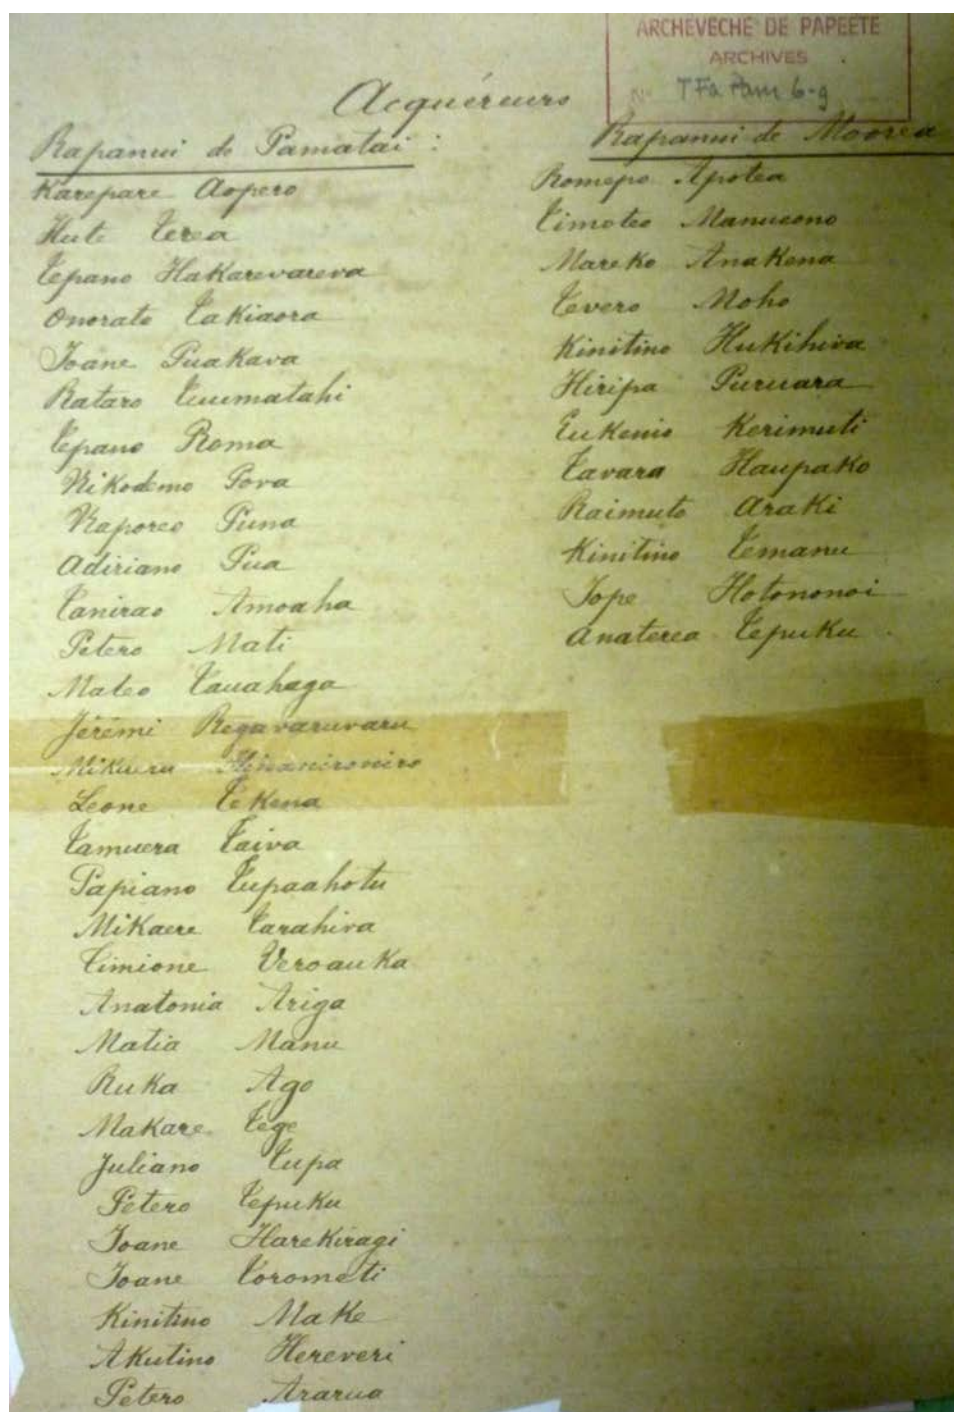 ARCHEVECHE DE PAPEETE
ARCHIVES
No TFa Pam 6-9
Acquéreurs
Rapanui de Pamatai :
Karepare Aopero
Hute Terea
Tepano Hakarevareva
Onorato Takiaora
Joane Puakava
Rataro Tuumatahi
Tepano Roma
Nikodemo Pova
Kaporeo Puna
Adiriano Pua
Tanirao Amoaha
Petero Mati
Mateo Tauahaga
Jérémi Regavaruvaru
Mikueru Hinanironiro
Leone Tekena
Tamuera Taiva
Papiano Tupaahotu
Mikaere Tarahiva
Timione Veroauka
Anatonia Ariga
Matia Manu
Ruka Ago
Makare Tege
Juliano Tupa
Petero Tepuku
Joane Harekiragi
Joane Torometi
Kinitino Make
Akutino Hereveri
Petero Ararua
Rapanui de Moorea
Romepo Apotea
Timoteo Manueono
Mareko Anakena
Tevero Moho
Kinitino Hukihiva
Hiripa Puruara
Eukenio Kerimuti
Tavara Haupako
Raimuto Araki
Kinitino Temanu
Jope Hotononoi
Anaterea Tepuku